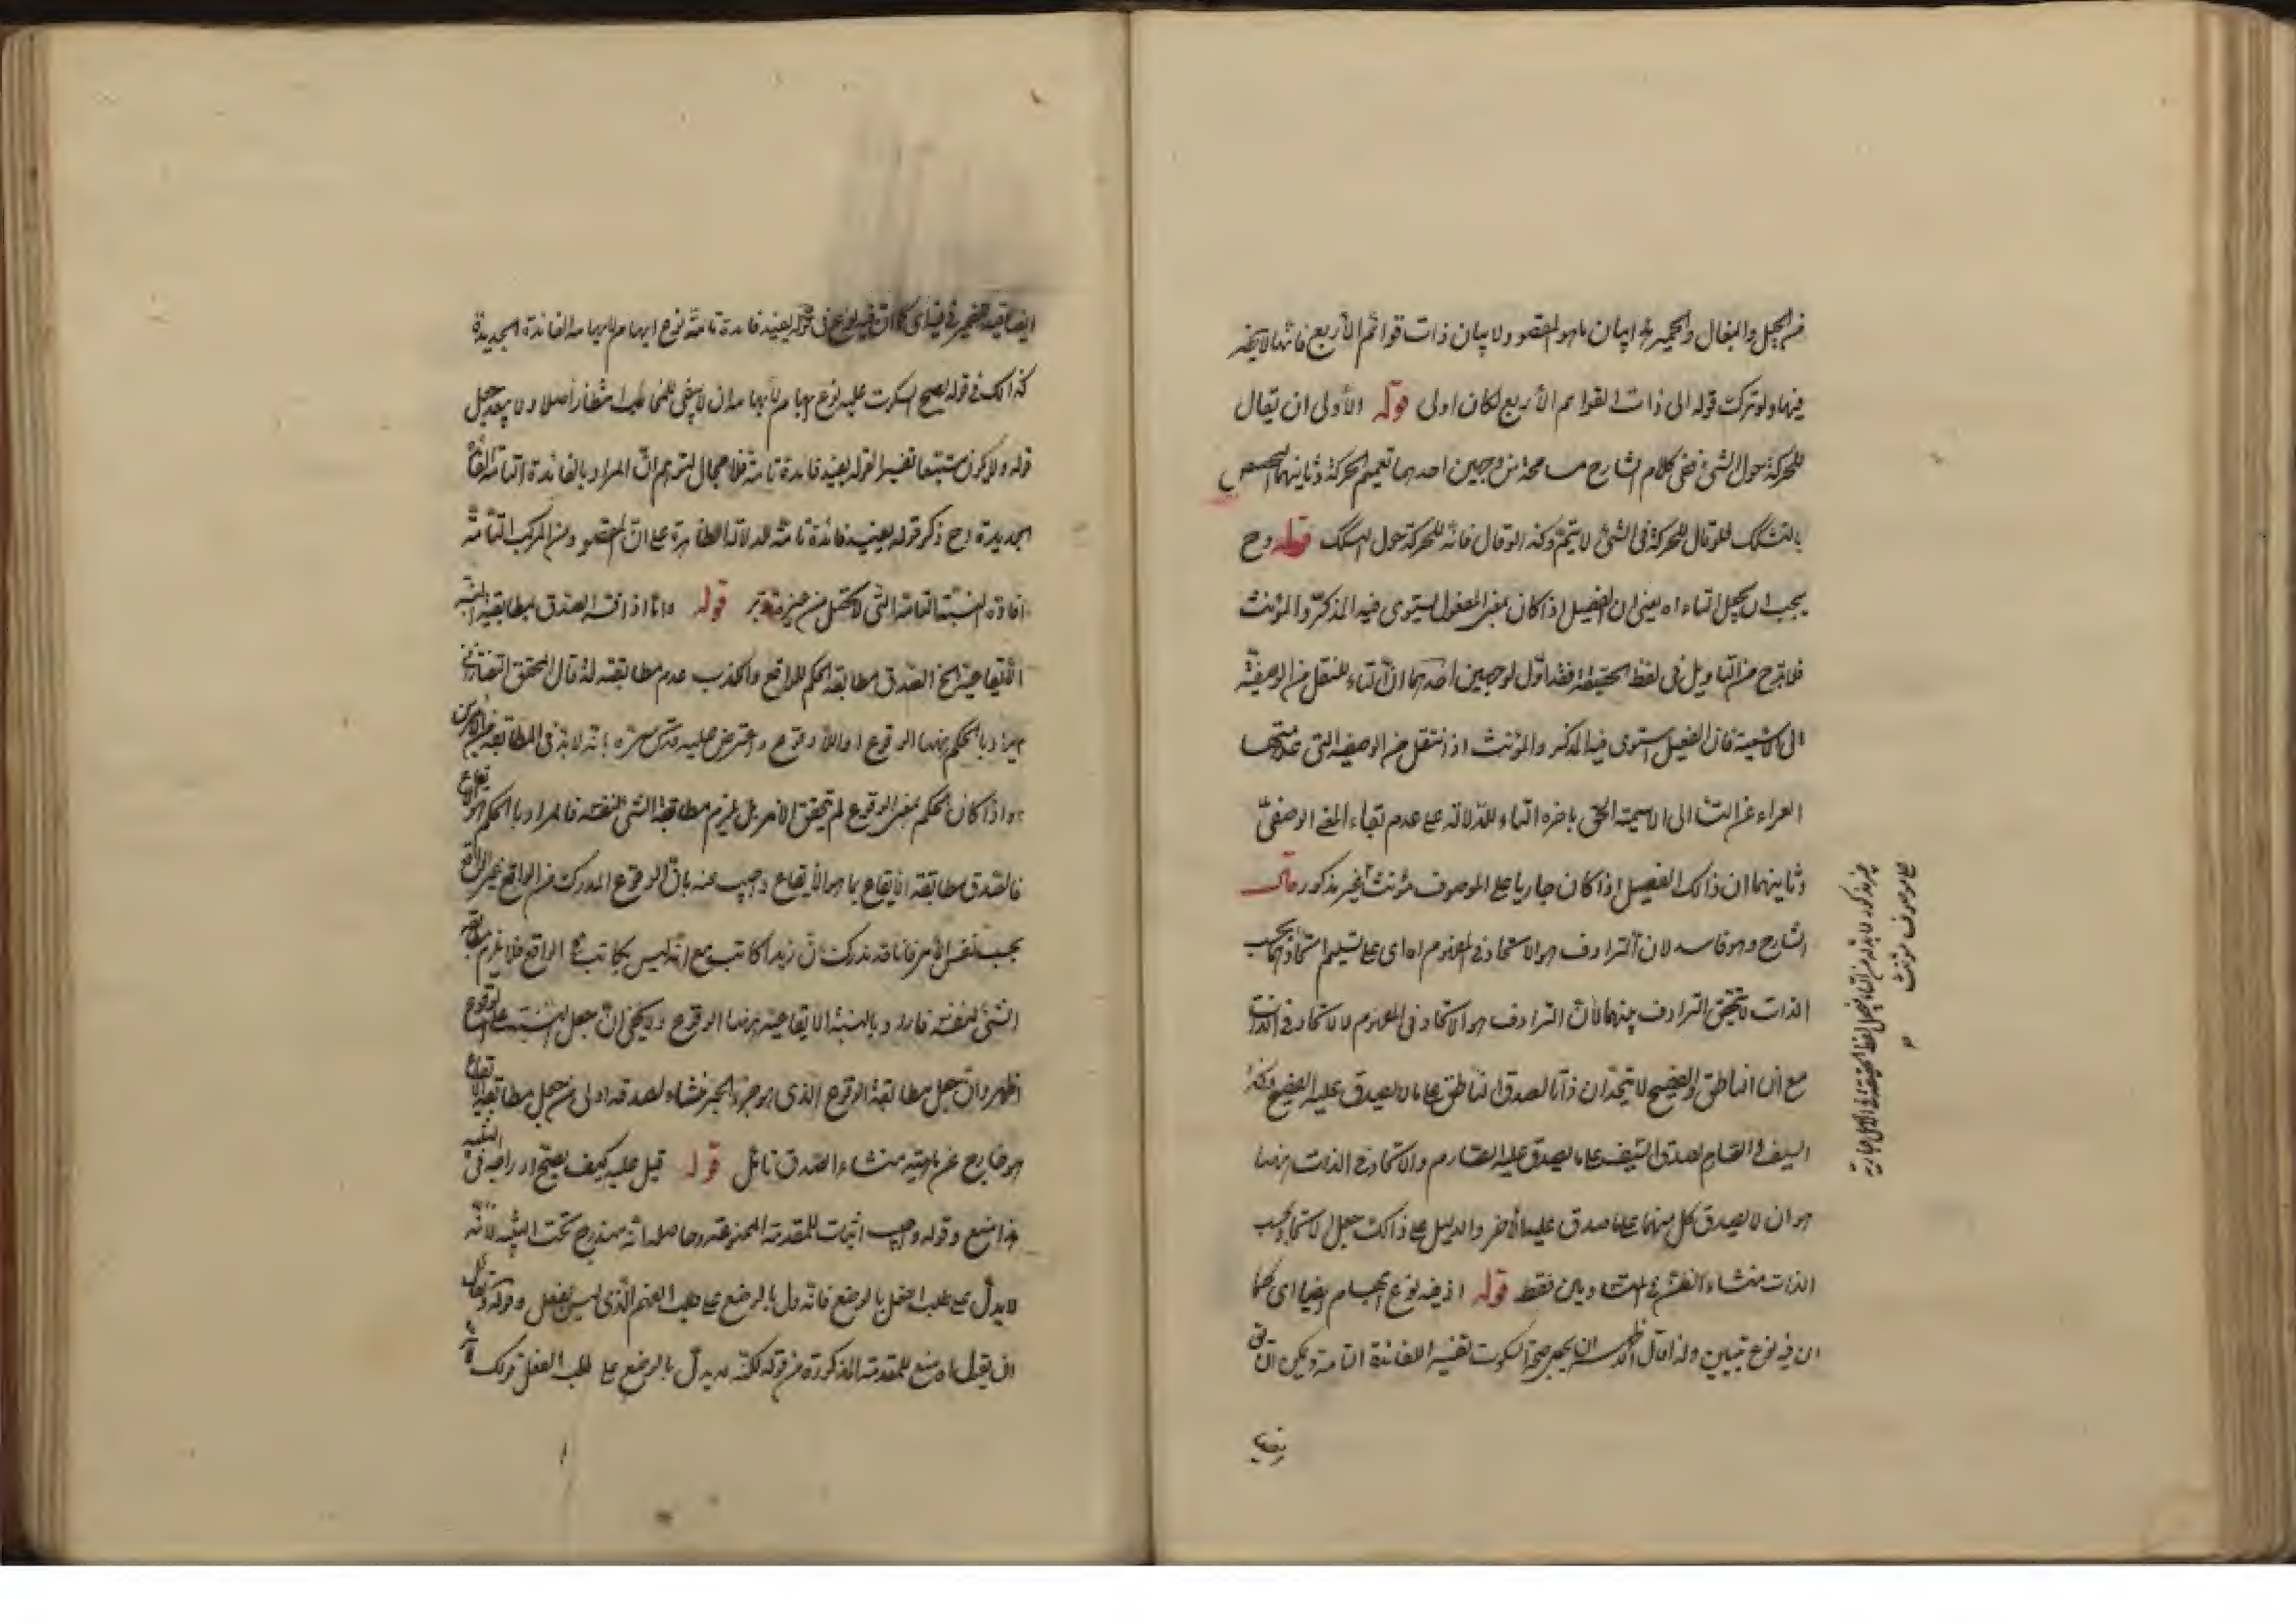 من الخيل والبغال والحمير هذا بيان ما هو المقصود ولا بيان ذات قوائم الأربع فانها لا تنحصر
فيها ولو ترك قوله الى ذات القوائم الأربع لكان اولى قوله الأولى ان يقال
للحركة حول الشئ ففى كلام الشارح مسامحة من وجهين احدهما تعميم الحركة وثانيهما التخصيص
بالنسك فلو قال للحركة فى الشئ لا يتم وكذا لو قال فانه للحركة حول السكك قوله وح
يجب ان يجعل التاء اه يعنى ان الفعيل اذا كان بمعنى المفعول يستوى فيه المذكر والمؤنث
فلا بد ح من التاويل فى لفظ الحقيقة فقد اول لوجهين احدهما ان التاء للنقل من الوصفية
الى الاسمية فان الفعيل يستوى فيه المذكر والمؤنث اذ انتقل من الوصفية التى
العراء عن التاء الى الاسمية الحق باخره التاء للدلالة على عدم بقاء المعنى الوصفى
وثانيهما ان ذالك الفعيل اذا كان جاريا على الموصوف مؤنث غير مذكور قال
الشارح وهو فاسد لان الترادف هو الاتحاد فى المفهوم اه اى على تسليم اتحادهما بحسب
الذات لا يتحقق الترادف بينهما لأن الترادف هو الاتحاد فى المفهوم لا الاتحاد فى الذات
مع ان الناطق والفصيح لا يتحدان ذاتا لصدق الناطق على ما لا يصدق عليه الفصيح وكذا
السيف والصارم لصدق السيف على ما لا يصدق عليه الصارم والاتحاد فى الذات ههنا
هو ان لا يصدق كل منهما على ما صدق عليه الآخر والدليل على ذالك جعل الاتحاد بحسب
الذات منشاء الظن فى المتساويين فقط قوله اذ فيه نوع ابهام ايضا اى كما
ان فيه نوع تبيين ولذا قال صحة السكوت تفسير اللفائدة التامة ويمكن ان
ايضا
غير مذكور لابد له من التاء فيجعل لفظ الحقيقة فى الاصل جارية
على موصوف مؤنث
ايضا اى كما ان فيه نوع فى قوله يفيد فائدة تامة نوع ابهام لايهامه الفائدة الجديدة
كذالك فى قوله يصح السكوت عليه نوع ابهام لايهامه ان لا يبقى للمخاطب انتظار أصلا ولا يبعد جعل
قوله ولا يكون مستتبعا تفسيرا لقوله يفيد فائدة تامة فلا مجال لتوهم ان المراد بالفائدة التامة الفائدة
الجديدة وح ذكر قوله يفيد فائدة تامة للدلالة الظاهرة على ان المقصود من المركب التامة
افادته النسبة التامة التى لا تحصل من غيره قوله واما اذا فسر الصدق بمطابقة النسبة
الأيقاعية الخ الصدق مطابقة الحكم للواقع والكذب عدم مطابقته له قال المحقق التفتازانى
يراد بالحكم ههنا الوقوع او اللاوقوع واعترض عليه قدس سره بانه لابد فى المطابقة من الامرين
واذا كان الحكم بمعنى الوقوع لم يتحقق الامر بل يلزم مطابقة الشئ لنفسه فالمراد بالحكم هو الايقاع
فالصدق مطابقة الأيقاع بما هو الأيقاع واجيب عنه بان الوقوع المدرك من الواقع غير الواقع
بحسب نفس الأمر فانا قد ندرك ان زيدا كاتب مع انه ليس بكاتب فى الواقع فلا يلزم مطابقة
الشئ لنفسه فاراد بالنسبة الأيقاعية ههنا الوقوع ولا يخفى ان جعل النسبة على الوقوع
اظهر وان جعل مطابقة الوقوع الذى هو جزء الخبر منشاء لصدقه اولى من جعل مطابقة الايقاع
هو خارج عن ماهيته منشاء الصدق تامل قوله قيل عليه كيف يصح ادراجه فى التنبيه
هذا منع وقوله واجيب اثبات للمقدمة الممنوعة وحاصله انه مندرج تحت التنبيه لأنه
لا يدل على طلب الفعل بالوضع فانه دل بالوضع على طلب الفهم الذى ليس بفعل وقوله
ان يقول اه منع للمقدمة المذكورة من قوله لكنه لا يدل بالوضع على طلب الفعل